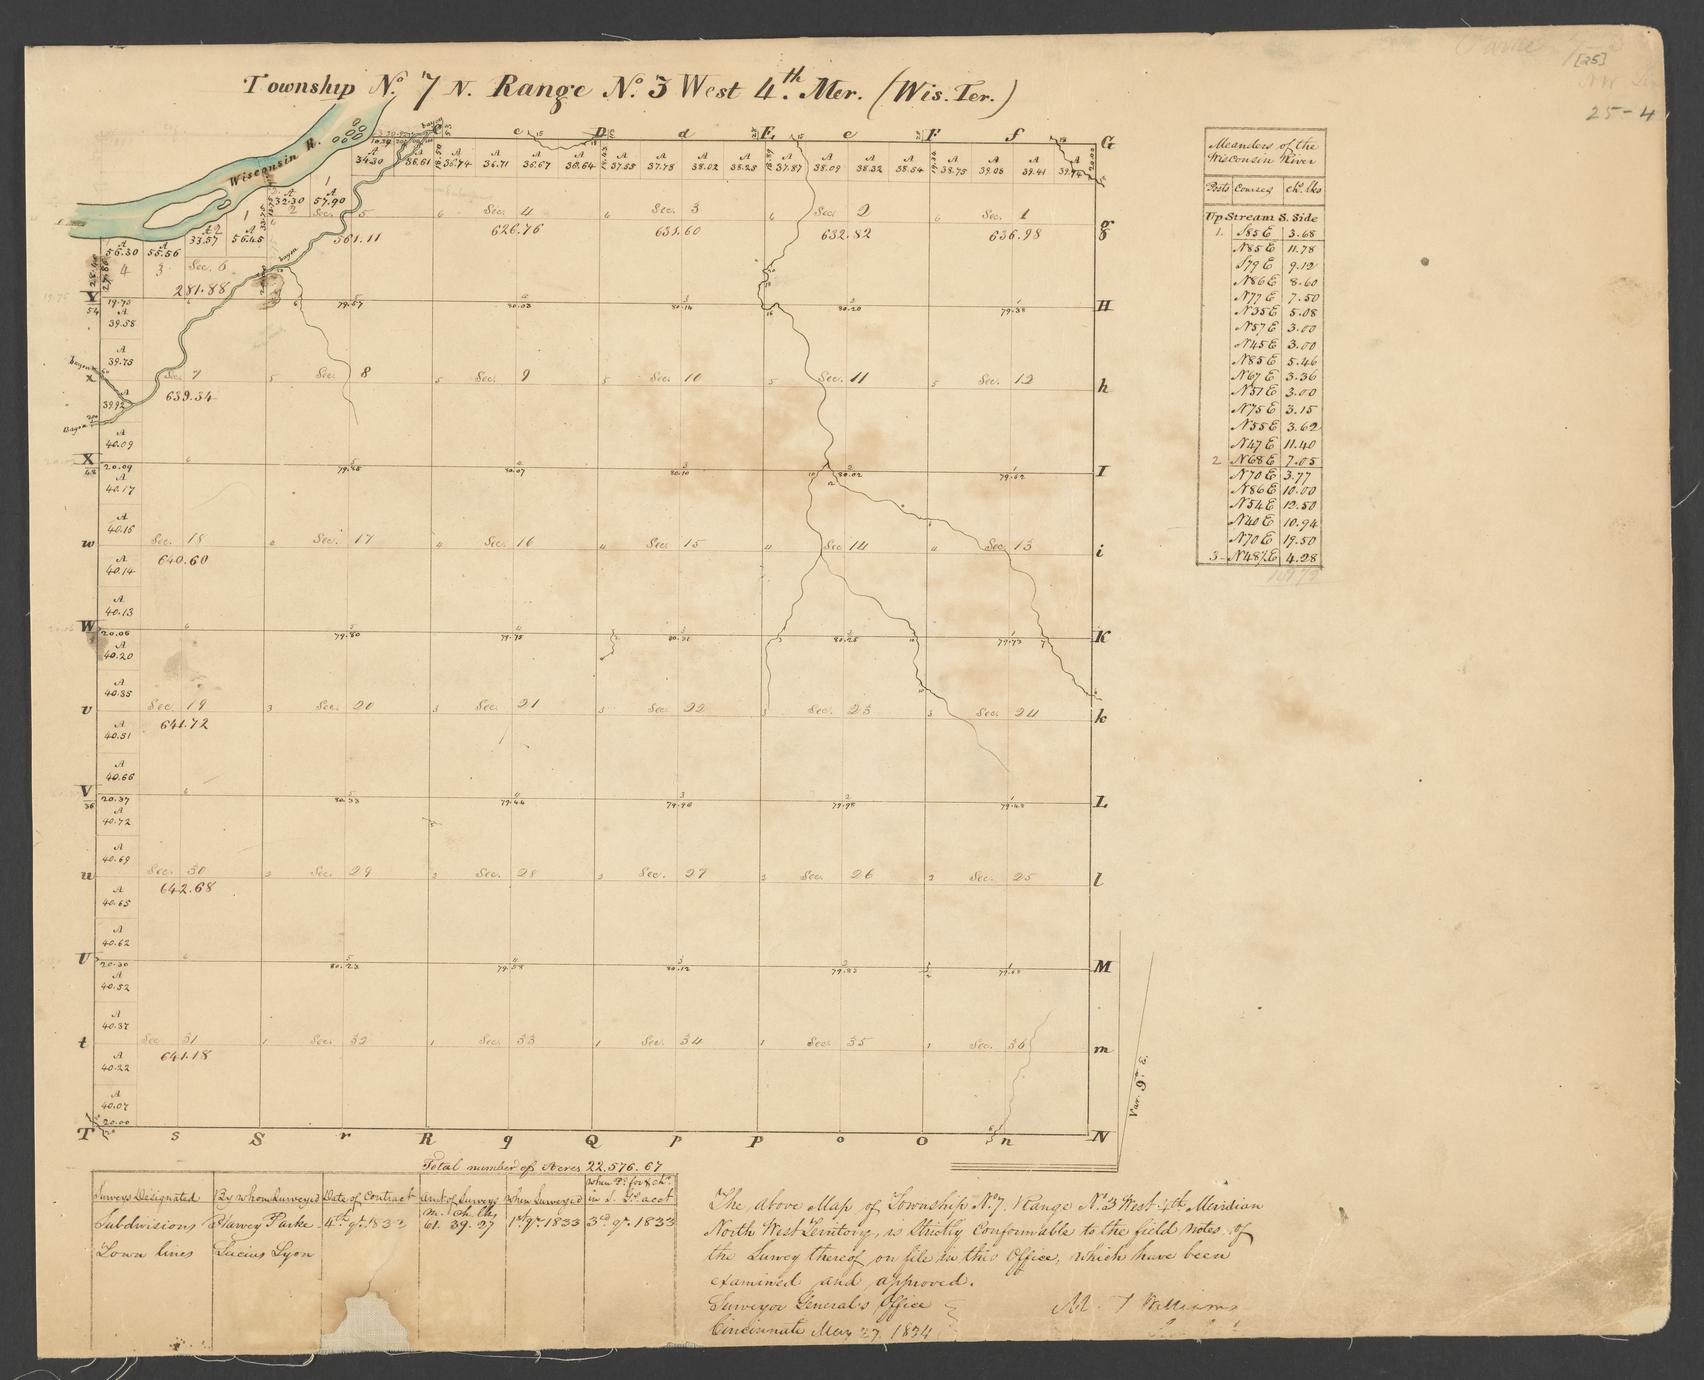 [25]
25-4
Township No. 7 N. Range No. 3 West 4th. Mer. (Wis. Ter.)
Wisconsin R.
C c D d E e F f G
A 34.30 A 36.61 A 36.74 A 36.71 A 36.67 A 36.64 A 37.55 A 37.78 A 38.02 A 38.25 A 37.87 A 38.09 A 38.32 A 38.54 A 38.75 A 39.08 A 39.41 A 39.74
A 32.30 A 57.90
Sec. 5 Sec. 4 Sec. 3 Sec. 2 Sec. 1 g
A 56.30 A 55.56 A 33.57 A 56.45
561.11 626.76 631.60 632.82 636.98
4 3 Sec. 6
281.88
bayou
Y 19.75 79.57 80.03 80.14 80.20 79.38 H
54
A 39.58
A 39.75
bayou
x Sec. 7 Sec. 8 Sec. 9 Sec. 10 Sec. 11 Sec. 12 h
A 39.92 639.34
Bayou
A 40.09
X 20.09 79.85 80.07 80.10 80.02 79.62 I
48
A 40.17
A 40.15
w Sec. 18 Sec. 17 Sec. 16 Sec. 15 Sec 14 Sec. 13 i
A 40.14 640.60
A 40.13
W 20.06 79.80 79.75 80.31 80.25 79.73 K
A 40.20
A 40.35
v Sec. 19 Sec. 20 Sec. 21 Sec. 22 Sec. 23 Sec. 24 k
A 40.51 641.72
A 40.66
V 20.37 80.33 79.44 79.96 79.98 79.48 L
36
A 40.72
A 40.69
u Sec. 30 Sec. 29 Sec. 28 Sec. 27 Sec. 26 Sec. 25 l
A 40.65 642.68
A 40.62
U 20.30 80.23 79.58 80.12 79.83 79.68 M
A 40.52
A 40.37
t Sec. 31 Sec. 32 Sec. 33 Sec. 34 Sec. 35 Sec. 36 m
A 40.22 641.18
A 40.07
20.00
T s S r R q Q p P o O n N
Var. 9° E.
Meanders of the
Wisconsin River
Posts Courses ch. lks
Up Stream S. Side
1. S85 E 3.68
N85 E 11.78
S79 E 9.12
N86 E 8.60
N77 E 7.50
N35 E 5.08
N57 E 3.00
N45 E 3.00
N85 E 5.46
N67 E 3.36
N51 E 3.00
N75 E 3.15
N55 E 3.62
N47 E 11.40
2 N68 E 7.05
N70 E 3.77
N86 E 10.00
N54 E 12.50
N40 E 10.94
N70 E 19.50
3- N48½ E 4.28
Total number of Acres 22.576.67
Surveys Designated By whom Surveyed Date of Contract Amt of Surveys When Surveyed When Pd. for & chd. in S. Gl. acct
m. ch. lks
Subdivisions Harvey Parke 4th qr. 1832 61. 39. 27 1st qr. 1833 3rd qr. 1833
Town lines Lucius Lyon
The above Map of Township No. 7. Range No. 3 West 4th Meridian
North West Territory, is Strictly Conformable to the field notes of
the Survey thereof on file in this Office, which have been
examined and approved.
Surveyor General's Office
Cincinnati May 27. 1834
M. T Williams